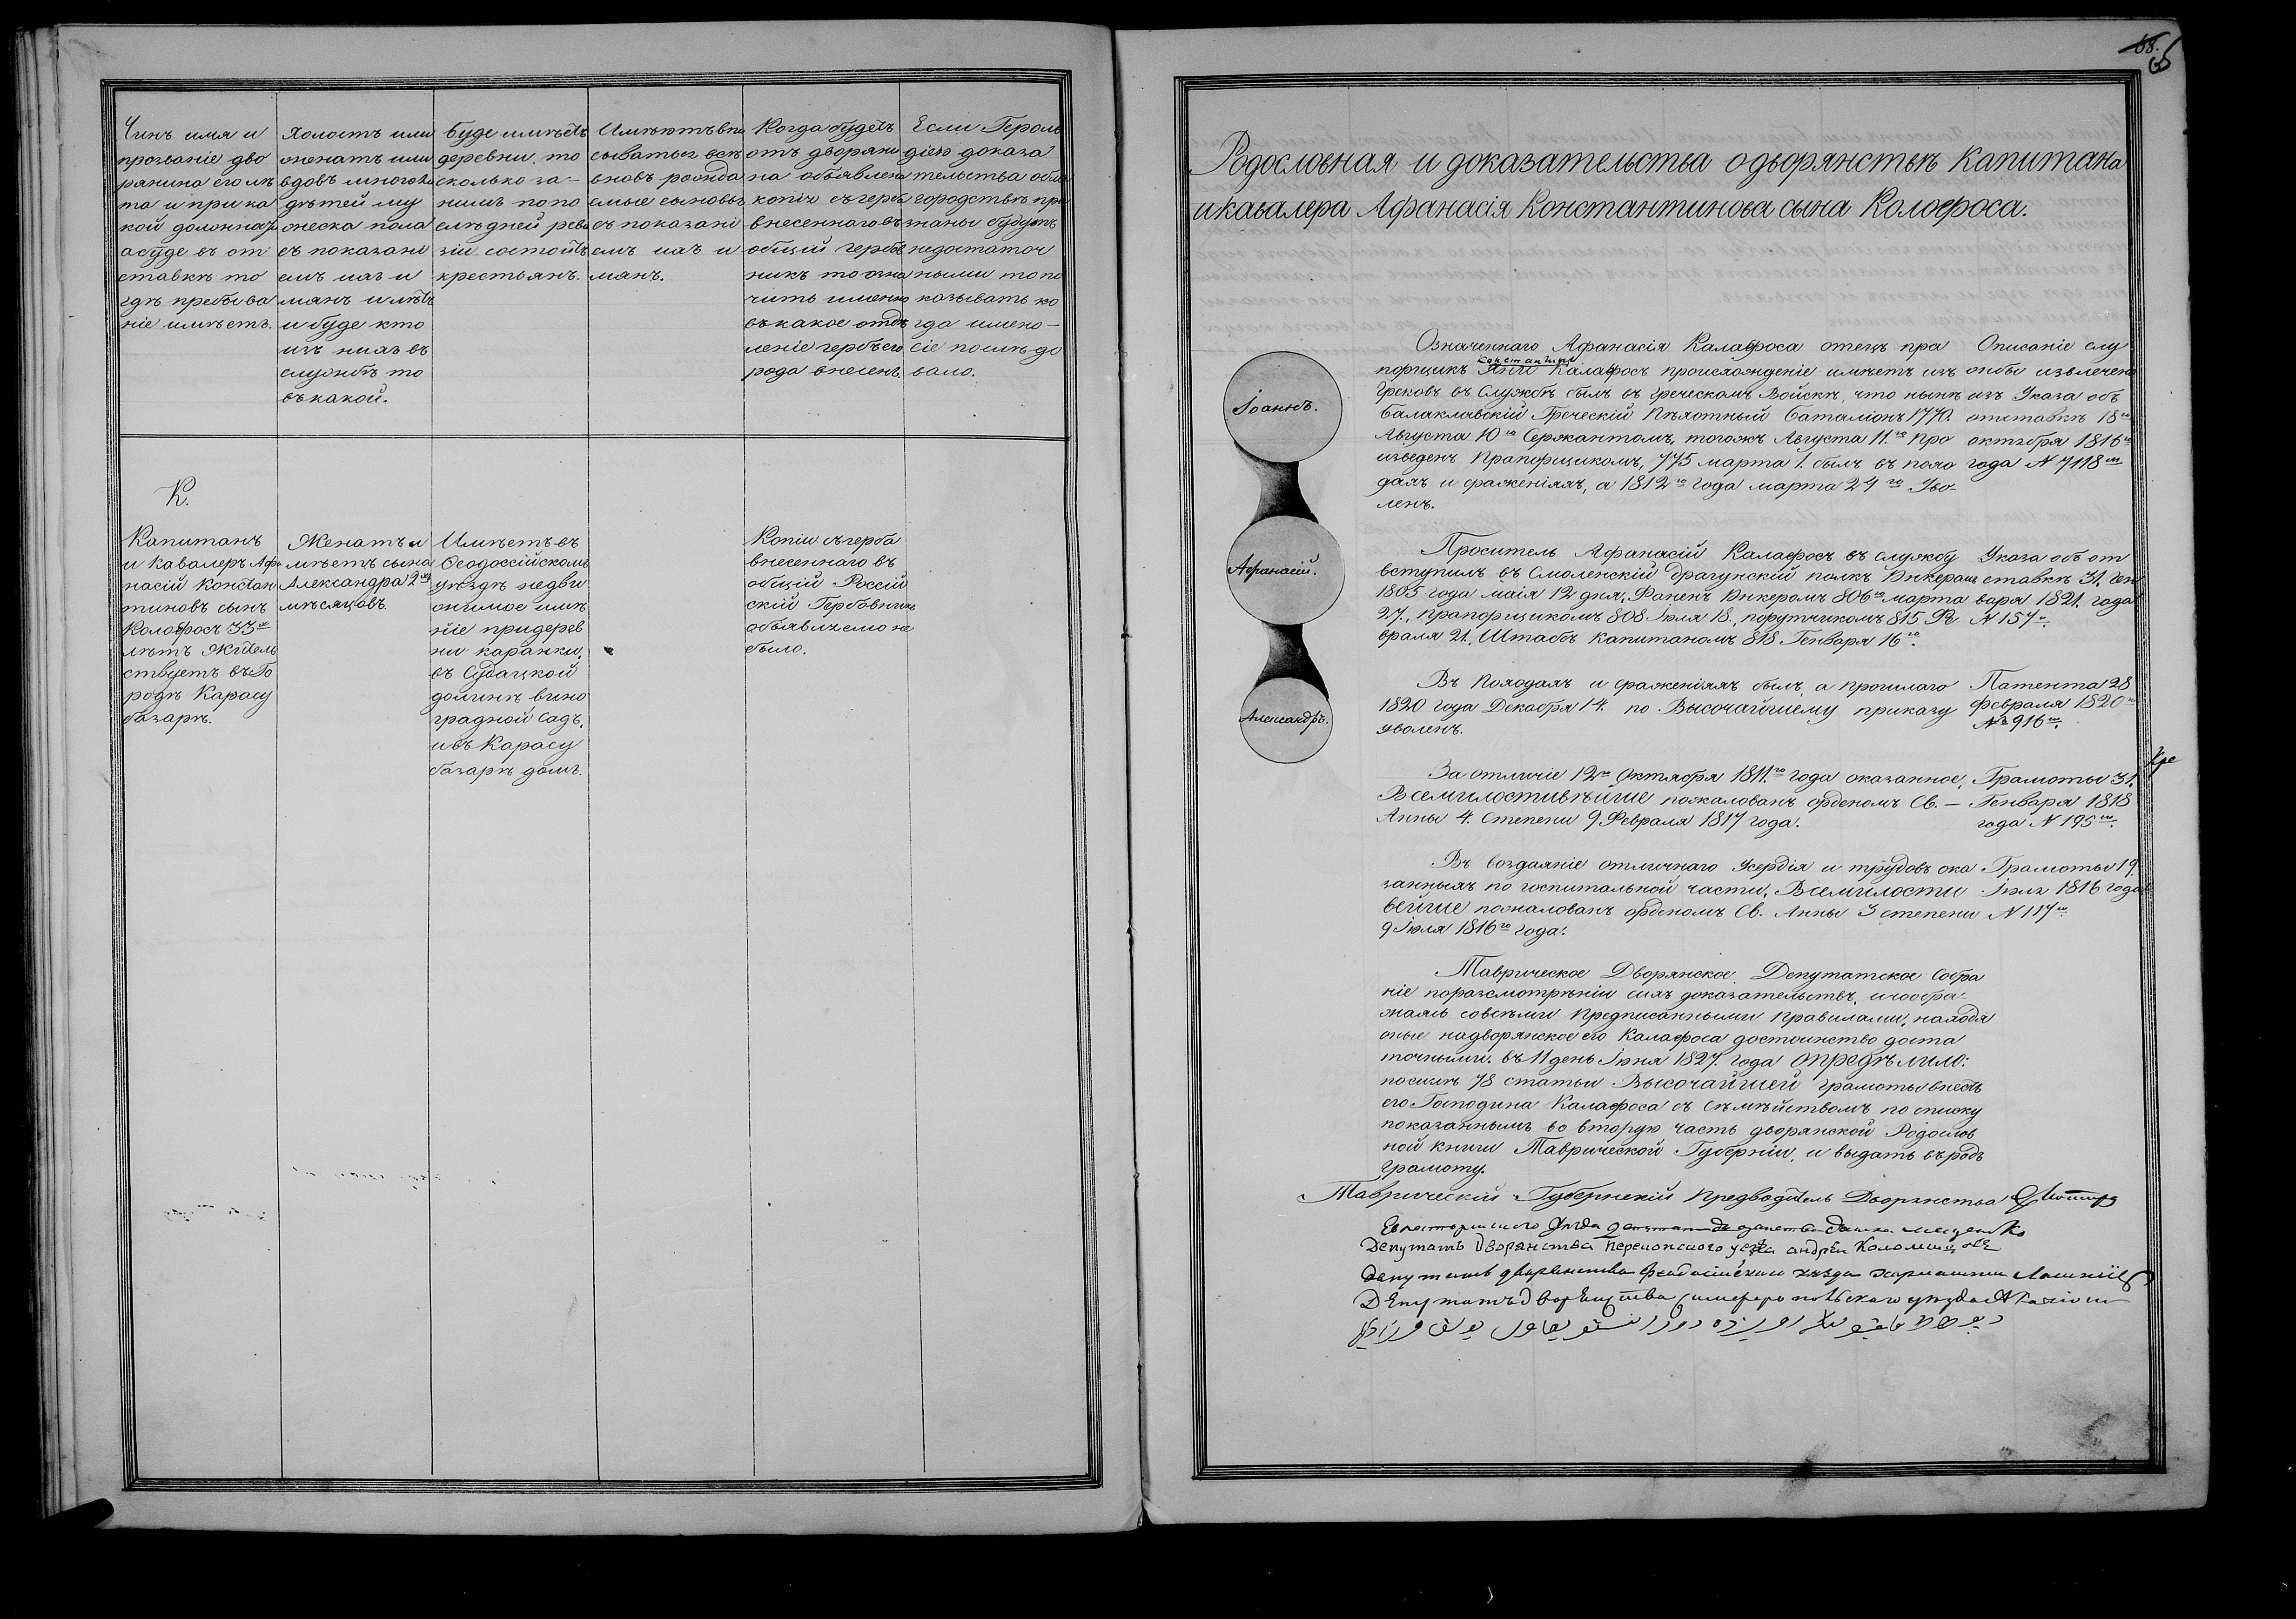 Чинъ имя и
прозваніе дво
рянина его лѣ
та и при ка
кой должнос
а буде въ от
ставкѣ то
гдѣ пребыва
ніе имѣетъ.
Холостъ или
женатъ или
вдовъ многоли
дѣтей му
жеска пола
съ показані
емъ ихъ и
мянъ и лѣтъ
и буде кто
изъ нихъ въ
службѣ то
въ какой.
Буде имѣетъ
деревни то
сколько за-
нимъ по по
слѣдней реви
зіи состоитъ
крестьянъ.
Имѣютъ впи
сыватьсь всѣ
вновь рожда
емые сыновья
съ показані
емъ ихъ и
мянъ.
Когда будетъ
отъ дворяни
на объявлена
копія съ герба
внесеннаго въ
общій гербов
никъ то озна
чить именно
въ какое отдѣ
леніе гербъ его
рода внесенъ.
Если Героль
діею доказа
тельства обла
городствѣ при
знаны будутъ
недостаточ
ными то по
казывать ко
гда имено-
сіе послѣдо
вало.
К.
Капитанъ
и Кавалеръ Афа
насій Констан
тиновъ сынъ
Колофосъ 33-хъ
лѣтъ Жител
ствуетъ въ Го
родѣ Карасу
базарѣ.
Женатъ и
мѣетъ сына
Александра 2-хъ
мѣсяцовъ.
Имѣетъ въ
Ѳеодоссійскомъ
уѣздѣ недви
жимое имѣ
ніе при дерев
ни каранки,
въ Судацкой
долинѣ вино
градной садъ,
и въ Карасу
базарѣ домъ.
Копіи съ герба
внесеннаго въ
общій Россій
скій Гербовникъ
объявляемо не
было.
68.
Родословная и доказательства о дворянствѣ Капитана
и кавалера Афанасія Константинова сына Колофоса.
Іоаннъ.
Афанасій.
Александръ.
Означеннаго Афанасія Калафоса отецъ пра
Константинъ
порщикъ Яни Калафосъ происхожденіе имѣетъ изъ
Грековъ въ Службѣ былъ въ Греческомъ Войскѣ, что нынѣ
Балаклавскій Греческій Пѣхотный баталіонъ 1770.
Августа 10 го Сержантомъ, тогожъ Августа 11. го Про
изведенъ Прапорщикомъ, 775 марта 1. былъ въ похо
дахъ и сраженіяхъ, а 1812 го года марта 24 го Уво-
ленъ.
Описаніе слу
жбы извлечено
изъ Указа объ
отставкѣ 18 го
октября 1816 го
года N 7118 м
Проситель Афанасій Калафосъ въ службу
вступилъ въ Смоленскій Драгунскій полкъ Юнкеромъ
1805 года маія 12 дня, Раненъ Юнкеромъ 806 го марта
27., Прапорщикомъ 808 Іюля 18., порутчикомъ 815 Фе
враля 21. Штабсъ капитаномъ 818 Генваря 16 го.
Указа объ от
ставкѣ 31. Ген
варя 1821. года
N 157
Въ Походахъ и сраженіяхъ былъ, а прошлаго
1820 года Декабря 14. по Высочайшему приказу
уволенъ.
Патента 28
Февраля 1820
№ 916 м.
За отличіе 12 го Октября 1811. го года оказанное,
Всемилостивѣйше пожалованъ орденомъ Св. —
Анны 4. степени 9 Февраля 1817 года.
Грамоты 31.
Генваря 1818
года N 195 м.
Въ воздаяніе отличнаго Усердія и трудовъ ока
занныхъ по госпитальной части, Всемилости
вейше пожалованъ орденомъ Св. Анны 3 степени
9 Іюля 1816 го года.
Грамоты 19.
Іюля 1816 года
N 117 м
Таврическое Дворянское Депутатское Собра
ніе поразсмотрѣніи сихъ доказательствъ, и сообра-
жаясь совсѣми Предписанными правилами, находя
оные надворянское его Калафоса достоинство доста
точными. въ 11 день Іюня 1827. года опредѣлило:
посилѣ 78 статьи Высочайшей грамоты внесть
его Господина Калафоса съ сѣмѣйствомъ по списку
показаннымъ во вторую часть дворянской Родослов
ной книги Таврической Губерніи, и выдать въ родъ
Грамоту.
Таврическій Губернскій Предводитель Дворянства
Депутатъ Дворянства Перекопского уезда андрѣй
Депутатъ дворянства Феодосійскаго уезда
Депутатъ Дворянства Симферопольскаго уѣзда